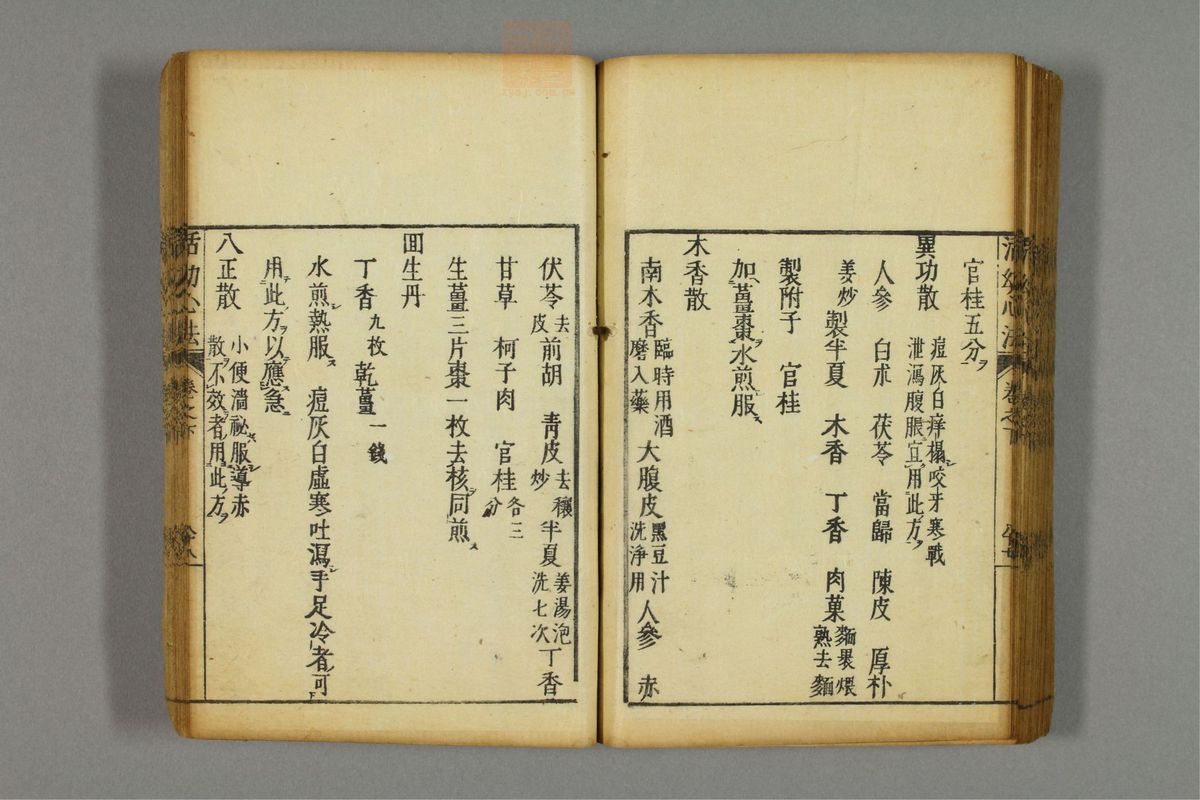 官桂五分
異功散 痘灰白痒榻咬牙寒戰
泄瀉腹脹宜用此方
人參 白朮 茯苓 當歸 陳皮 厚朴
姜炒 製半夏 木香 丁香 肉菓 麵裹煨
熟去麵
製附子 官桂
加薑棗水煎服
木香散
南木香 臨時用酒
磨入藥 大腹皮 黑豆汁
洗淨用 人參 赤
伏苓 去
皮 前胡 靑皮 去穰
炒 半夏 姜湯泡
洗七次 丁香
甘草 柯子肉 官桂 各三
分
生薑三片棗一枚去核同煎
回生丹
丁香 九枚 乾薑 一錢
水煎熟服 痘灰白虛寒吐瀉手足冷者可
用此方以應急
八正散 小便濇祕服導赤
散不效者用此方
活幼心法 卷之下